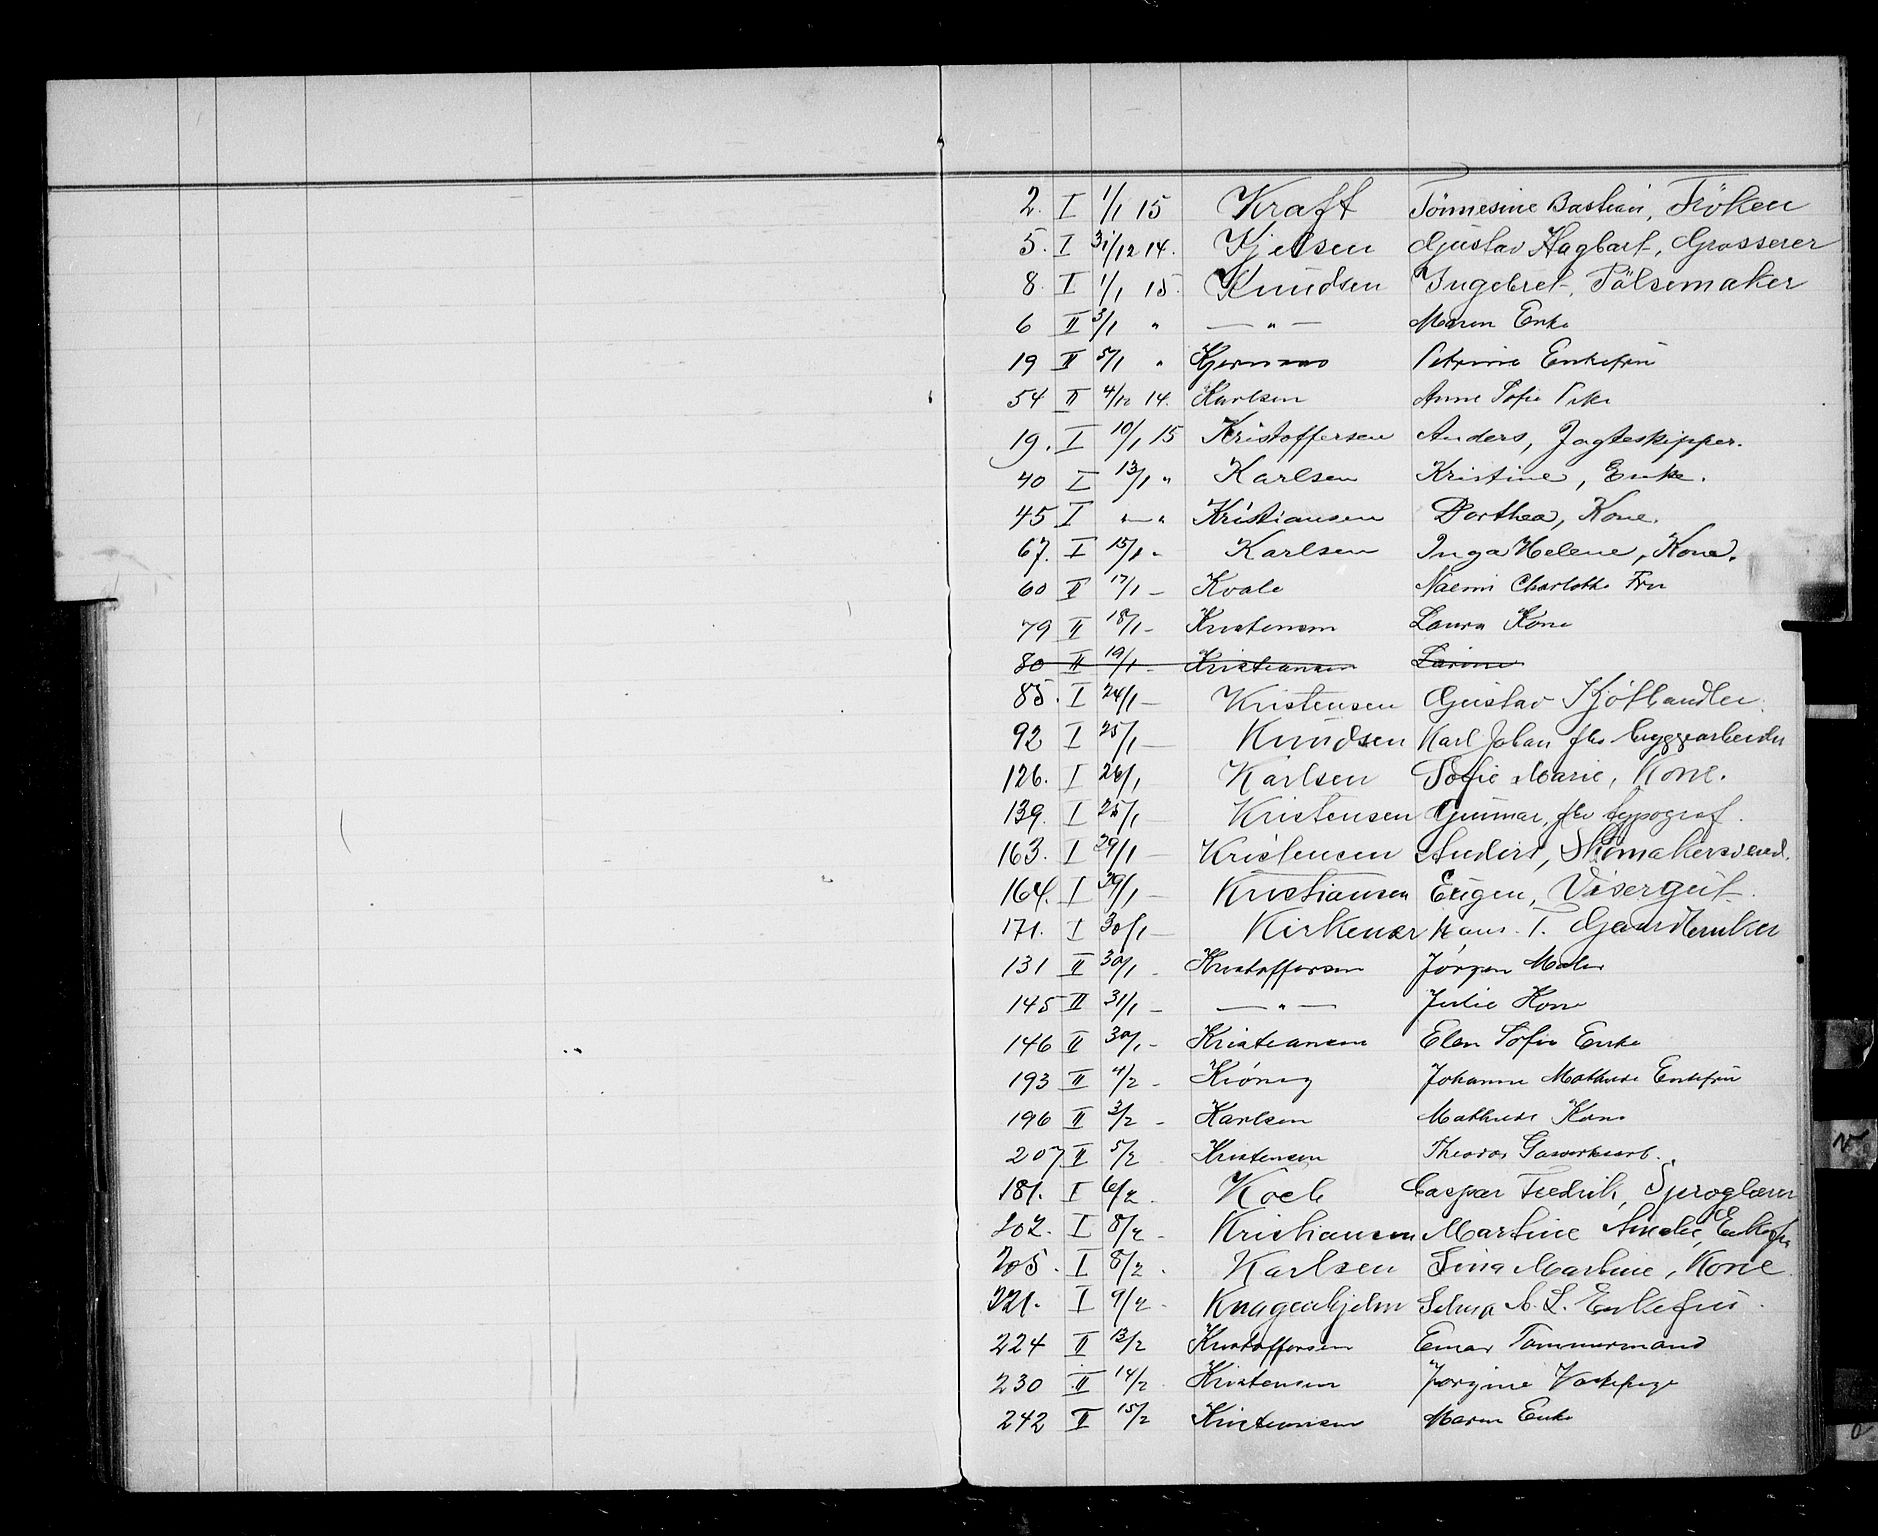 2. I 1/1 15 Kraft Tönnesine Bastian, Fröken
5. I 31/12 14. Kjelsen Gustav Hagbart, Grosserer
8. I 1/1 15. Knudsen Ingebret, Pölsemaker
6 II 3/1 " — " — Maren Enke
19 II 5/1 " Petrine Enkefru
54 II 4/12 14. Karlsen Anne Sofie Pike
19. I 10/1 15 Kristoffersen Anders, Jagteskipper.
40 I 13/1 " Karlsen Kristine, Enke.
45 I "—" Kristiansen Dorthea, Kone.
67. I 15/1 - Karlsen Inga Helene, Kone.
60 II 17/1 - Kvale Naemi Charlotte Fru
79 II 18/1 - Kristensen Laura Kone
80 II 19/1 - Kristiansen Larine
85. I 24/1 - Kristensen Gustav Kjöthandler.
92 I 25/1 - Knudsen Karl Johan fhv byggearbeider
126. I 26/1 Karlsen Sofie Marie, Kone.
139. I 25/1 - Kristensen Gunnar, fhv typograf.
163. I 29/1 - Kristensen Anders, Skomakersvend.
164. I 29/1 - Kristiansen Eugen, Visergut
171. I 30/1 - Kirkener Hans T.
131 II 30/1 - Kristoffersen Jørgen Maler
145 II 31/1 - — " — Julie Kone
146 II 30/1 - Kristiansen Elen Sofie Enke
193 II 4/2 - Johanne Mathilde Enkefru
196 II 3/2 - Karlsen Mathilde Kone
207 II 5/2 Kristensen Theodor Gasverksarb.
181. I 6/2. Koch Caspar Fredrik, Sproglærer
202. I 8/2 - Kristiansen Martine Amalie, Enkefru
205. I 8/2 . Karlsen Sina Martine, Kone
221. I 9/2 - Knagenhjelm Selma A. L. Enkefru.
224 II 13/2 Kristoffersen Einar Tømmermand
230 II 14/2 Kristensen Jørgine Vaskepige
242 II 15/2 Kristiansen Maren Enke